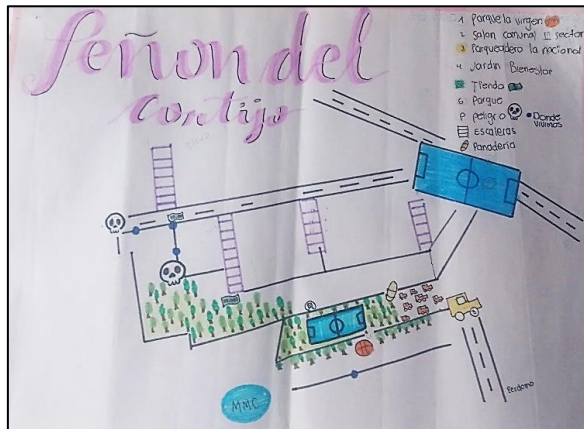 Peñon del
cortijo
1 Parque la virgen
2 Salon comunal II sector
3 Parqueadero la nacional
4 Jardin Bienestar
Tienda
6 Parque
P Peligro
Donde
vivimos
Escaleras
Panaderia
MMC
Perdomo